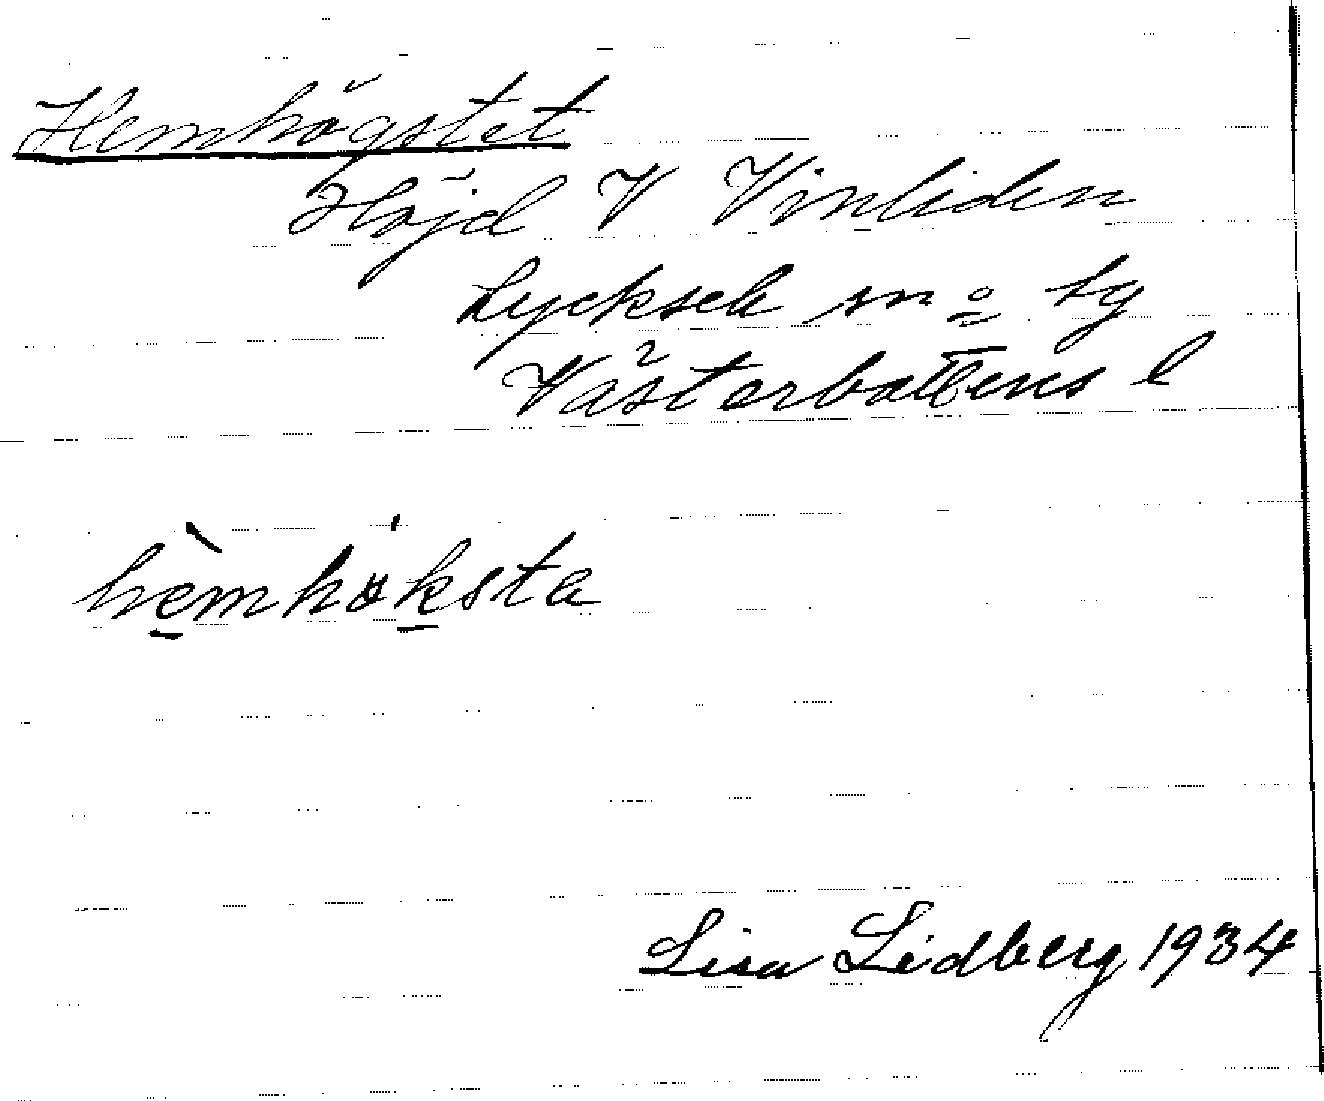 Hemhögstet
Höjd V Vinliden
Lycksele sn o lg
Västerbottens l
hèmhöksta
Lisa Lidberg 1934